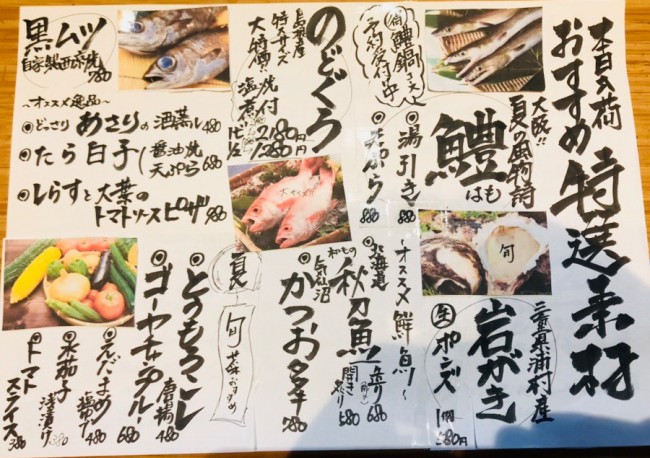 本日入荷
おすすめ特選素材
大阪!!
夏の風物詩
鱧
はも
湯引き 880
天ぷら 880
鱧鍋コース
予約受付中
三重県浦村産
岩がき
旬
生 ポンズ
1個 980円
～オススメ鮮魚～
北海道
秋刀魚
造り 680
開き炙り 580
気仙沼
かつおタタキ
980
のどぐろ
島根産
特大サイズ
大特価!!
塩焼
煮付
1匹 2180円
1/2 1280円
黒ムツ
自家製西京焼
980
～オススメ逸品～
どっさりあさりの酒蒸し 480
たら白子 醤油焼 天ぷら 680
しらすと大葉の
トマトソースピザ 980
夏 旬 菜おすすめ
とうもろこし
唐揚 480
ゴーヤチャンプル
680
えだまめ
塩ゆで
480
水茄子
浅漬け
380
トマト
スライス
380